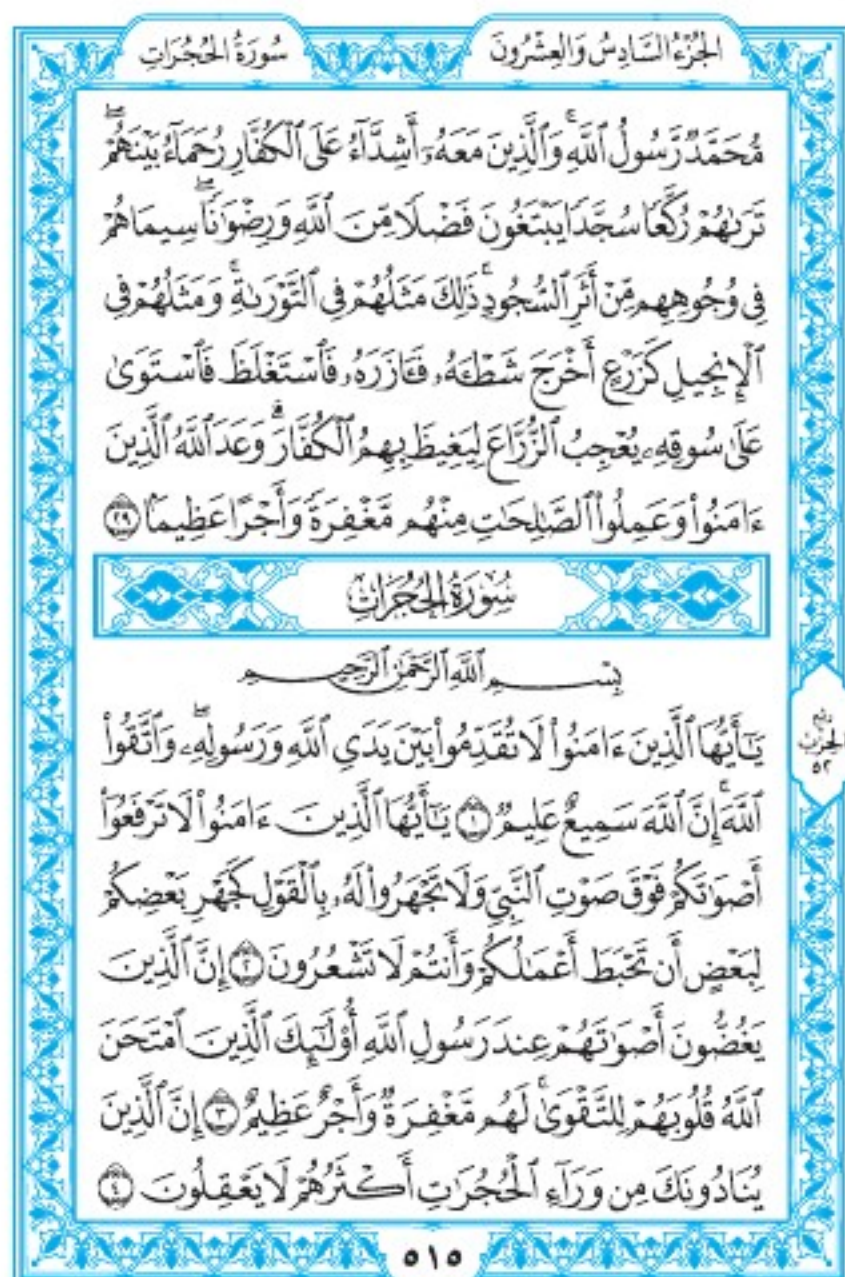 سُورَةُ الحُجُرَاتِ
الجُزْءُ السَّادِسُ وَالعِشْرُونَ
مُّحَمَّدٌ رَّسُولُ ٱللَّهِۚ وَٱلَّذِينَ مَعَهُۥٓ أَشِدَّآءُ عَلَى ٱلْكُفَّارِ رُحَمَآءُ بَيْنَهُمْۖ
تَرَىٰهُمْ رُكَّعًا سُجَّدًا يَبْتَغُونَ فَضْلًا مِّنَ ٱللَّهِ وَرِضْوَٰنًاۖ سِيمَاهُمْ
فِى وُجُوهِهِم مِّنْ أَثَرِ ٱلسُّجُودِۚ ذَٰلِكَ مَثَلُهُمْ فِى ٱلتَّوْرَىٰةِۚ وَمَثَلُهُمْ فِى
ٱلْإِنجِيلِ كَزَرْعٍ أَخْرَجَ شَطْـَٔهُۥ فَـَٔازَرَهُۥ فَٱسْتَغْلَظَ فَٱسْتَوَىٰ
عَلَىٰ سُوقِهِۦ يُعْجِبُ ٱلزُّرَّاعَ لِيَغِيظَ بِهِمُ ٱلْكُفَّارَۗ وَعَدَ ٱللَّهُ ٱلَّذِينَ
ءَامَنُوا۟ وَعَمِلُوا۟ ٱلصَّٰلِحَٰتِ مِنْهُم مَّغْفِرَةً وَأَجْرًا عَظِيمًۢا ٢٩
سُورَةُ الحُجُرَاتِ
بِسْمِ ٱللَّهِ ٱلرَّحْمَٰنِ ٱلرَّحِيمِ
يَٰٓأَيُّهَا ٱلَّذِينَ ءَامَنُوا۟ لَا تُقَدِّمُوا۟ بَيْنَ يَدَىِ ٱللَّهِ وَرَسُولِهِۦۖ وَٱتَّقُوا۟
ٱللَّهَۚ إِنَّ ٱللَّهَ سَمِيعٌ عَلِيمٌ ١ يَٰٓأَيُّهَا ٱلَّذِينَ ءَامَنُوا۟ لَا تَرْفَعُوٓا۟
أَصْوَٰتَكُمْ فَوْقَ صَوْتِ ٱلنَّبِىِّ وَلَا تَجْهَرُوا۟ لَهُۥ بِٱلْقَوْلِ كَجَهْرِ بَعْضِكُمْ
لِبَعْضٍ أَن تَحْبَطَ أَعْمَٰلُكُمْ وَأَنتُمْ لَا تَشْعُرُونَ ٢ إِنَّ ٱلَّذِينَ
يَغُضُّونَ أَصْوَٰتَهُمْ عِندَ رَسُولِ ٱللَّهِ أُو۟لَٰٓئِكَ ٱلَّذِينَ ٱمْتَحَنَ
ٱللَّهُ قُلُوبَهُمْ لِلتَّقْوَىٰۚ لَهُم مَّغْفِرَةٌ وَأَجْرٌ عَظِيمٌ ٣ إِنَّ ٱلَّذِينَ
يُنَادُونَكَ مِن وَرَآءِ ٱلْحُجُرَٰتِ أَكْثَرُهُمْ لَا يَعْقِلُونَ ٤
٥٢
٥١٥